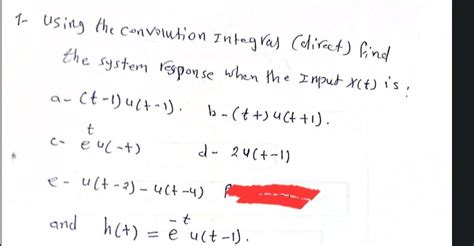 1- Using the convolution Integral (direct) find
the system response when the Input x(t) is:
a- (t-1)u(t-1). b- (t+)u(t+1).
c- e^t u(-t) d- 2u(t-1)
e- u(t-2) - u(t-4)
and h(t) = e^-t u(t-1).